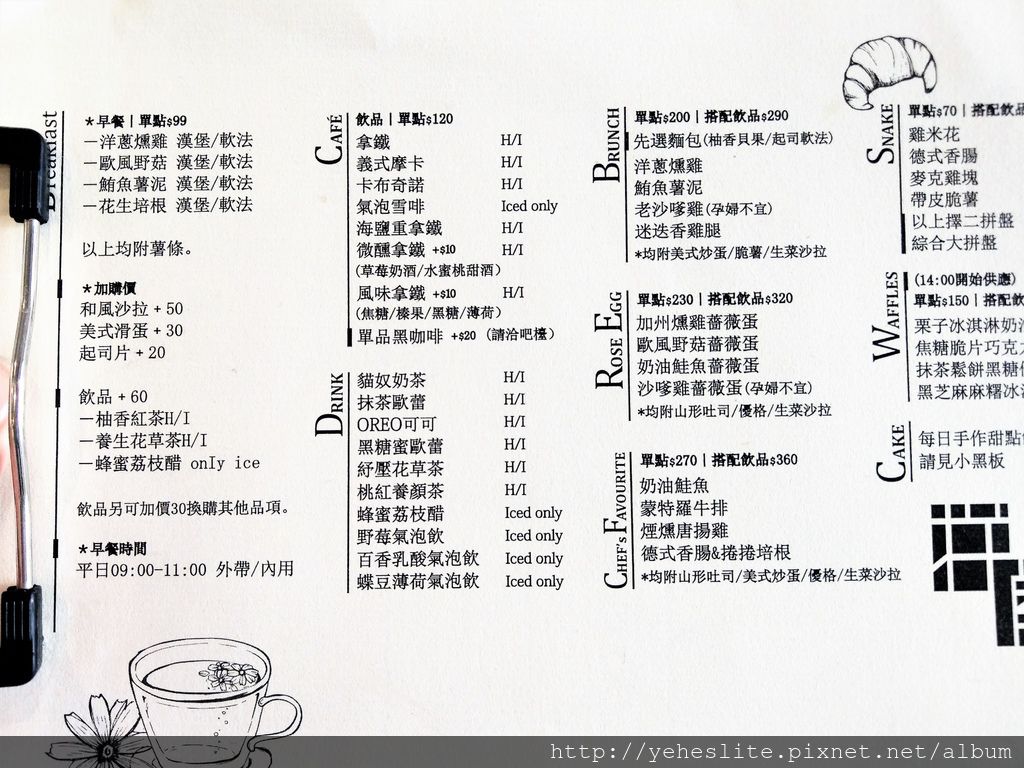 Breakfast
＊早餐｜單點$99
－洋蔥燻雞 漢堡/軟法
－歐風野菇 漢堡/軟法
－鮪魚薯泥 漢堡/軟法
－花生培根 漢堡/軟法
以上均附薯條。
＊加購價
和風沙拉＋50
美式滑蛋＋30
起司片＋20
飲品＋60
－柚香紅茶H/I
－養生花草茶H/I
－蜂蜜荔枝醋 only ice
飲品另可加價30換購其他品項。
＊早餐時間
平日09:00-11:00 外帶/內用
CAFÉ
飲品｜單點$120
拿鐵 H/I
義式摩卡 H/I
卡布奇諾 H/I
氣泡雪啡 Iced only
海鹽重拿鐵 H/I
微醺拿鐵 +$10 H/I
(草莓奶酒/水蜜桃甜酒)
風味拿鐵 +$10 H/I
(焦糖/榛果/黑糖/薄荷)
單品黑咖啡 +$20 (請洽吧檯)
DRINK
貓奴奶茶 H/I
抹茶歐蕾 H/I
OREO可可 H/I
黑糖蜜歐蕾 H/I
紓壓花草茶 H/I
桃紅養顏茶 H/I
蜂蜜荔枝醋 Iced only
野莓氣泡飲 Iced only
百香乳酸氣泡飲 Iced only
蝶豆薄荷氣泡飲 Iced only
BRUNCH
單點$200｜搭配飲品$290
先選麵包(柚香貝果/起司軟法)
洋蔥燻雞
鮪魚薯泥
老沙嗲雞(孕婦不宜)
迷迭香雞腿
*均附美式炒蛋/脆薯/生菜沙拉
ROSE EGG
單點$230｜搭配飲品$320
加州燻雞薔薇蛋
歐風野菇薔薇蛋
奶油鮭魚薔薇蛋
沙嗲雞薔薇蛋(孕婦不宜)
*均附山形吐司/優格/生菜沙拉
CHEF's FAVOURITE
單點$270｜搭配飲品$360
奶油鮭魚
蒙特羅牛排
煙燻唐揚雞
德式香腸&捲捲培根
*均附山形吐司/美式炒蛋/優格/生菜沙拉
SNAKE
單點$70｜搭配飲品
雞米花
德式香腸
麥克雞塊
帶皮脆薯
以上擇二拼盤
綜合大拼盤
WAFFLES
(14:00開始供應)
單點$150｜搭配飲
栗子冰淇淋奶
焦糖脆片巧克
抹茶鬆餅黑糖
黑芝麻麻糬冰
CAKE
每日手作甜點
請見小黑板
http://yeheslite.pixnet.net/album